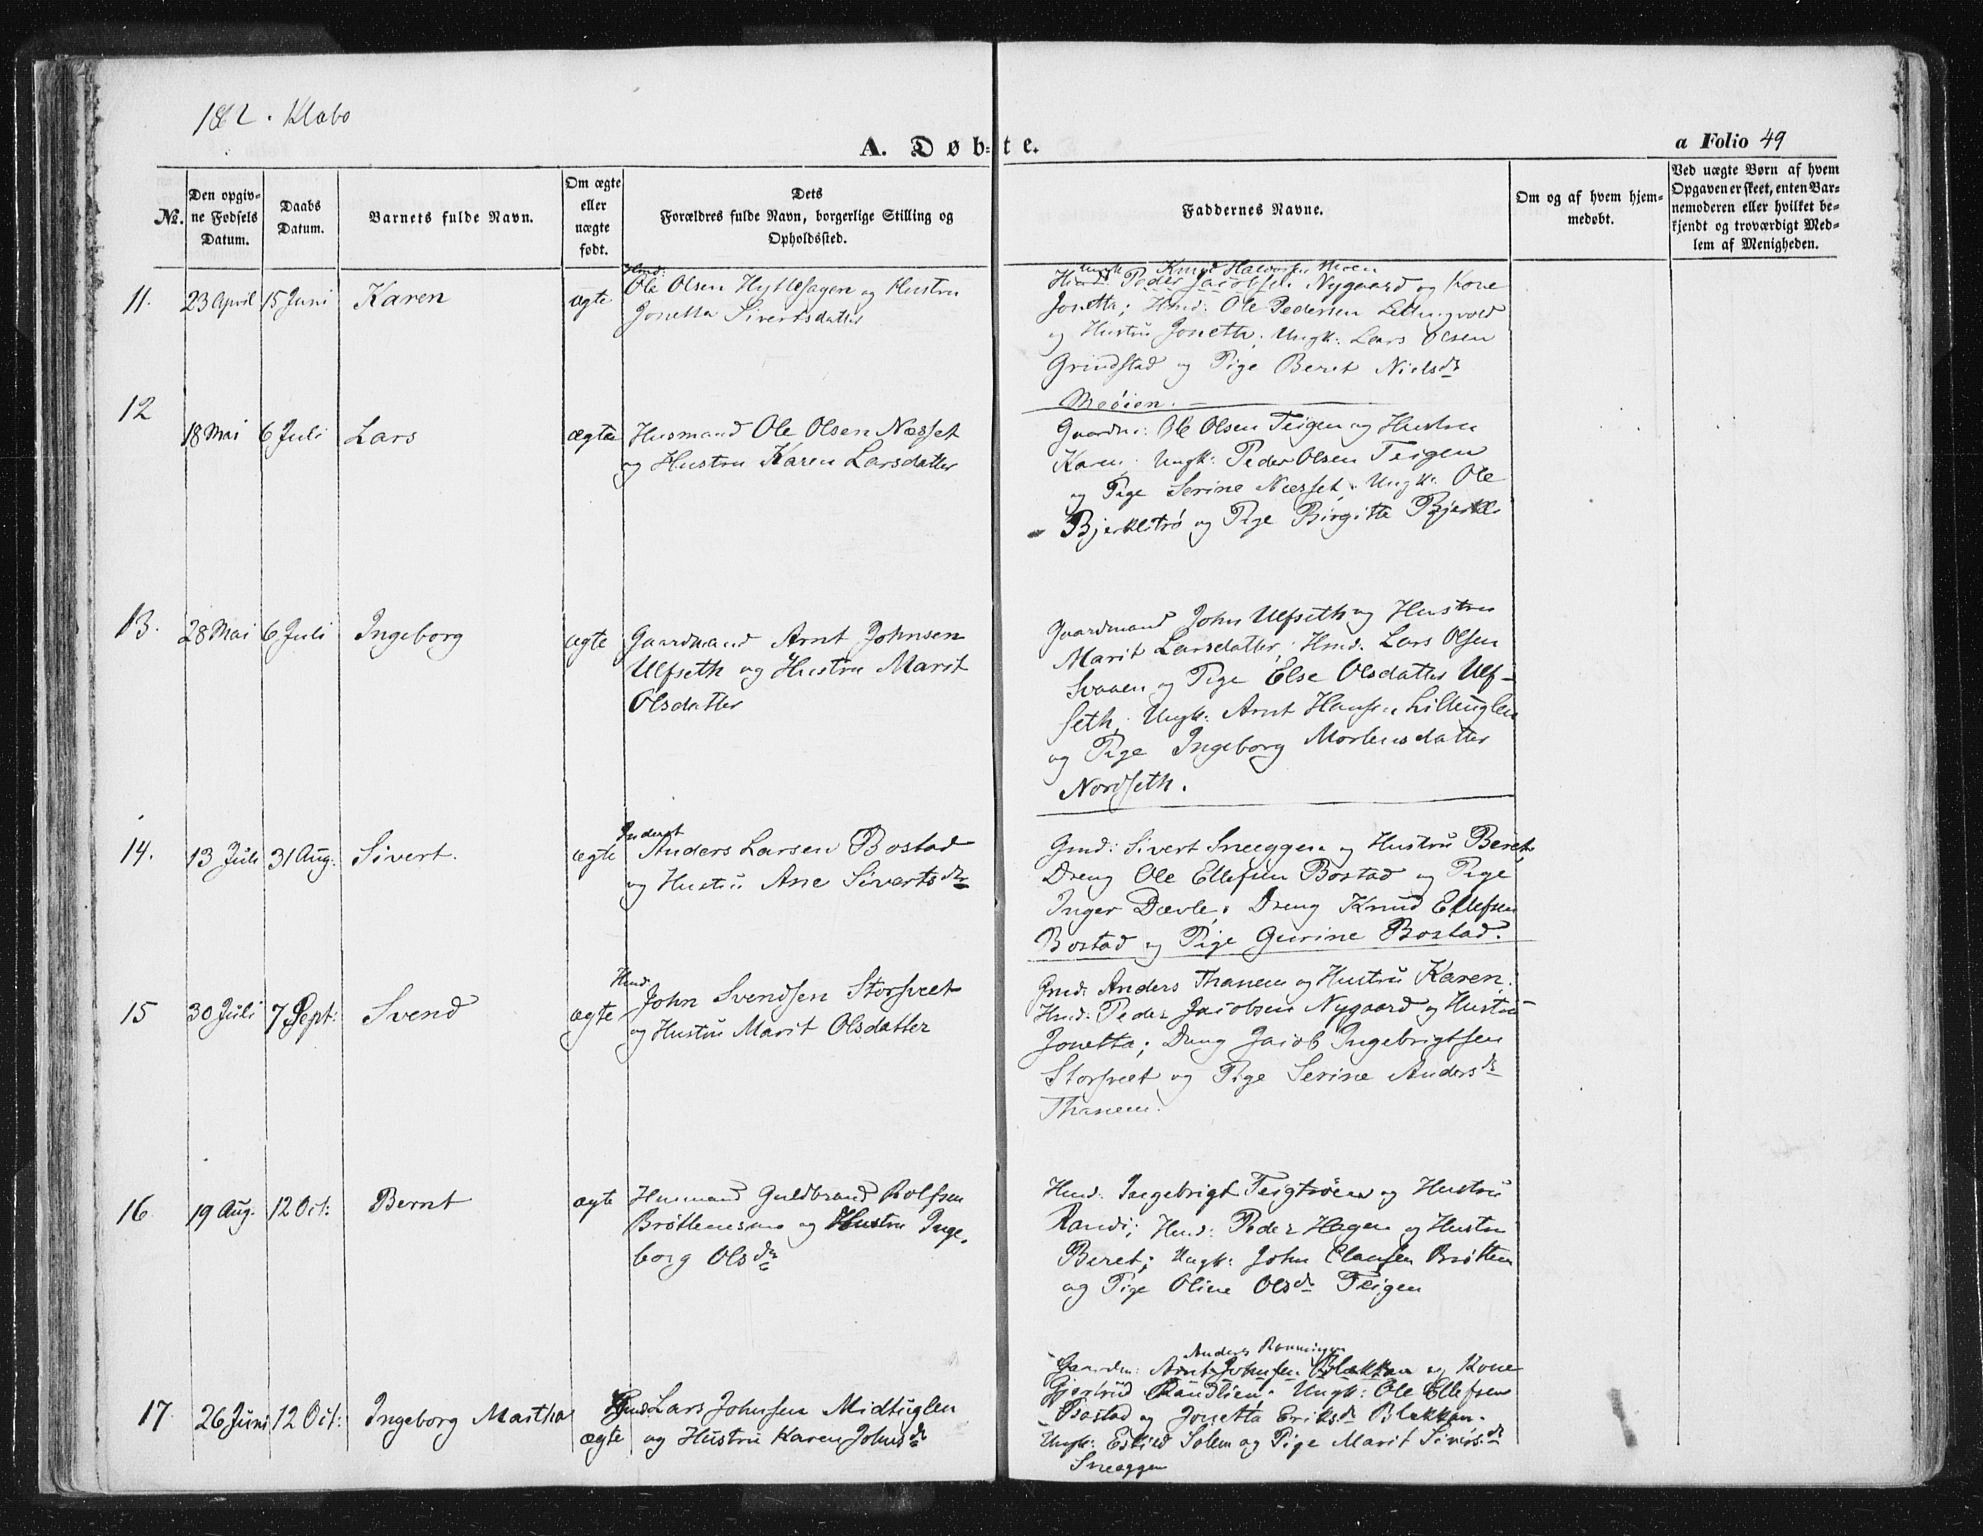 1862. Klabo
A. Døb-te.
a Folio 49
No.
Den opgiv-
ne Fødsels
Datum.
Daabs
Datum.
Barnets fulde Navn.
Om ægte
eller
uægte
født.
Dets
Forældres fulde Navn, borgerlige Stilling og
Opholdssted.
Faddernes Navne.
Om og af hvem hjem-
medøbt.
Ved uægte Børn af hvem
Opgaven er skeet, enten Bar-
nemoderen eller hvilket be-
kjendt og troværdigt Med-
lem af Menigheden.
11. 23 April 15 Juni Karen ægte
Hmd:
Ole Olsen Hyttesagen og Hustru
Jonetta Sivertsdatter
Ungk: Knud Halvorsen Moen
Hmd: Peder Jacobsen Nygaard og Kone
Jonetta; Hmd: Ole Pedersen
og Hustru Jonetta; Ungk: Lars Olsen
Grindstad og Pige Beret Nielsdr
Meøien.
12 18 Mai 6 Juli Lars ægte
Husmand Ole Olsen Næsset
og Hustru Karen Larsdatter
Gaardm: Ole Olsen Teigen og Hustru
Karen; Ungk: Peder Olsen Teigen
og Pige Serine Næsset; Ungk: Ole
Bjerklitrø og Pige Birgitte Bjerkli
13. 28 Mai 6 Juli Ingeborg ægte
Gaardmand Arnt Johnsen
Ulfseth og Hustru Marit
Olsdatter
Gaardmand John Ulfseth og Hustru
Marit Larsdatter; Hmd: Lars Olsen
Svaaen og Pige Else Olsdatter Ulf-
seth; Ungk: Arnt Hansen Lilleuglen
og Pige Ingeborg Mortensdatter
Nordseth.
14. 13 Juli 31 Aug. Sivert. ægte
Inderst
Anders Larsen Bostad
og Hustru Ane Sivertsdr
Gmd: Sivert Sneeggen og Hustru Beret,
Dreng Ole Ellefsen Bostad og Pige
Inger Dævle; Dreng Knud Ellefsen
Bostad og Pige Gurine Bostad.
15 30 Juli 7 Sept: Svend ægte
Hmd
John Svendsen Storsveet
og Hustru Marit Olsdatter
Gmd: Anders Thanem og Hustru Karen;
Hmd: Peder Jacobsen Nygaard og Hustru
Jonetta; Dreng Jacob Ingebrigtsen
Storsveet og Pige Serine Andersdr
Thanem.
16 19 Aug. 12 Oct: Bernt ægte
Husmand Guldbrand Rolfsen
og Hustru Inge-
borg Olsdr
Hmd: Ingebrigt Teigtrøen og Hustru
Randi; Hmd: Peder Hagen og Hustru
Beret; Ungk: John Clausen Brøttem
og Pige Oline Olsdr Teigen
17 26 Juni 12 Oct: Ingeborg Martha ægte
Gmd: Lars Johnsen Midtuglen
og Hustru Karen Johnsdr
Anders Rønningen
Gaardm: Arnt Johnsen Blækkan og Kone
Gjertrud; Ungk: Ole Ellefsen
Bostad og Jonetta Eriksdr Blekkan.
Ungk: Eskild Solem og Pige Marit Siversdr
Sneeggen